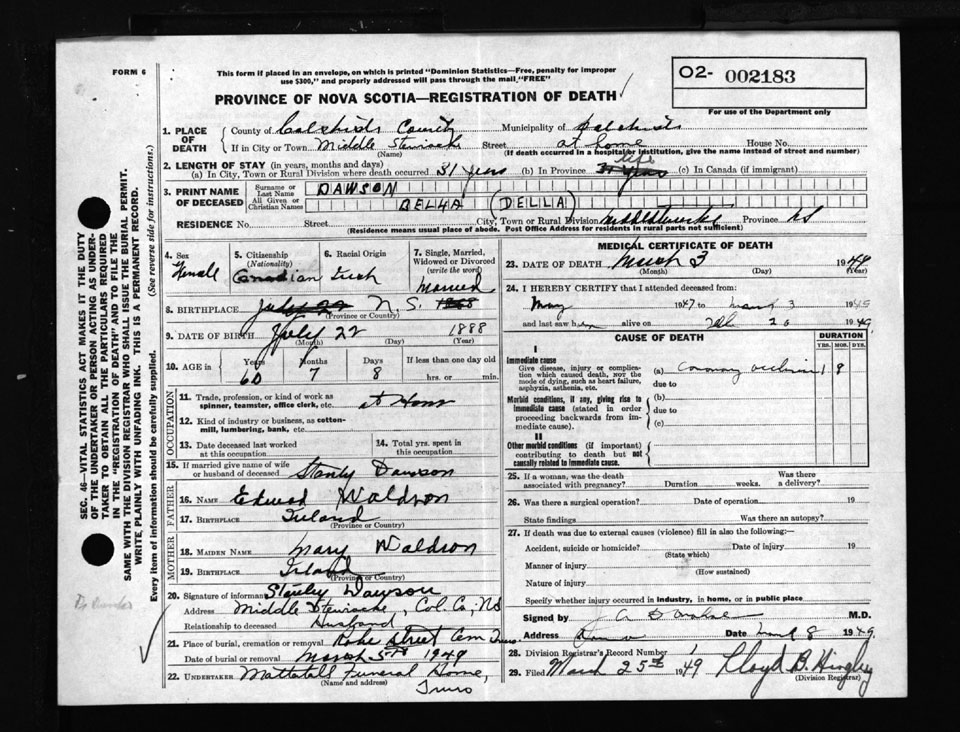 FORM 6
This form if placed in an envelope, on which is printed "Dominion Statistics—Free, penalty for improper
use $300," and properly addressed will pass through the mail, "FREE"
O2- 002183
For use of the Department only
PROVINCE OF NOVA SCOTIA—REGISTRATION OF DEATH
1. PLACE OF DEATH
County of Colchester County Municipality of Colchester
If in City or Town Middle Stewiacke Street at home House No.
(Name) (If death occurred in a hospital or institution, give the name instead of street and number)
2. LENGTH OF STAY (in years, months and days)
(a) In City, Town or Rural Division where death occurred 31 years (b) In Province 31 years life (c) In Canada (if immigrant)
3. PRINT NAME OF DECEASED
Surname or Last Name DAWSON
All Given or Christian Names DELHA (DELLA)
RESIDENCE No. Street City, Town or Rural Division Middle Stewiacke Province NS
(Residence means usual place of abode. Post Office Address for residents in rural parts not sufficient)
4. Sex Female
5. Citizenship (Nationality) Canadian
6. Racial Origin Irish
7. Single, Married, Widowed or Divorced (write the word) Married
8. BIRTHPLACE July 22 N.S. 1888
(Province or Country)
9. DATE OF BIRTH July 22 1888
(Month) (Day) (Year)
10. AGE in Years 60 Months 7 Days 8 If less than one day old hrs. or min.
OCCUPATION
11. Trade, profession, or kind of work as spinner, teamster, office clerk, etc. at Home
12. Kind of industry or business, as cotton-mill, lumbering, bank, etc.
13. Date deceased last worked at this occupation
14. Total yrs. spent in this occupation
15. If married give name of wife or husband of deceased Stanley Dawson
FATHER
16. NAME Edward Waldron
17. BIRTHPLACE Ireland
(Province or Country)
MOTHER
18. MAIDEN NAME Mary Waldron
19. BIRTHPLACE Ireland
(Province or Country)
20. Signature of informant Stanley Dawson
Address Middle Stewiacke, Col. Co., NS
Relationship to deceased Husband
21. Place of burial, cremation or removal Robie Street Cem Truro
Date of burial or removal March 5th 1949
22. UNDERTAKER Mattatall Funeral Home,
(Name and address) Truro
MEDICAL CERTIFICATE OF DEATH
23. DATE OF DEATH March 3 1949
(Month) (Day) (Year)
24. I HEREBY CERTIFY that I attended deceased from:
May 1947 to March 3 1949
and last saw her alive on Feb 20 1949
CAUSE OF DEATH
DURATION
YRS. MOS. DYS.
I
Immediate cause
Give disease, injury or complication which caused death, not the mode of dying, such as heart failure, asphyxia, asthenia, etc.
(a) Coronary occlusion 1 8
due to
Morbid conditions, if any, giving rise to immediate cause (stated in order proceeding backwards from immediate cause).
(b)
due to
(c)
II
Other morbid conditions (if important) contributing to death but not causally related to immediate cause.
25. If a woman, was the death associated with pregnancy? Duration weeks. Was there a delivery?
26. Was there a surgical operation? Date of operation 19
State findings Was there an autopsy?
27. If death was due to external causes (violence) fill in also the following:
Accident, suicide or homicide? Date of injury 19
(State which)
Manner of injury
(How sustained)
Nature of injury
Specify whether injury occurred in industry, in home, or in public place
Signed by M.D.
Address Date March 8 1949
28. Division Registrar's Record Number 1
29. Filed March 25th 1949 Lloyd B. Hingley
(Division Registrar)
SEC. 46—VITAL STATISTICS ACT MAKES IT THE DUTY
OF THE UNDERTAKER OR PERSON ACTING AS UNDER-
TAKER TO OBTAIN ALL THE PARTICULARS REQUIRED
IN THE "REGISTRATION OF DEATH" AND TO FILE THE
SAME WITH THE DIVISION REGISTRAR WHO SHALL ISSUE THE BURIAL PERMIT.
WRITE PLAINLY WITH UNFADING INK. THIS IS A PERMANENT RECORD.
Every item of information should be carefully supplied. (See reverse side for instructions.)